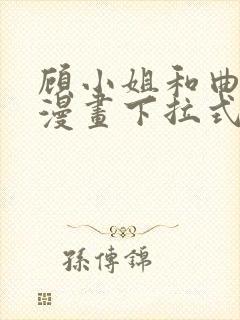 顾小姐和曲
漫畫下拉式
孫傳錦